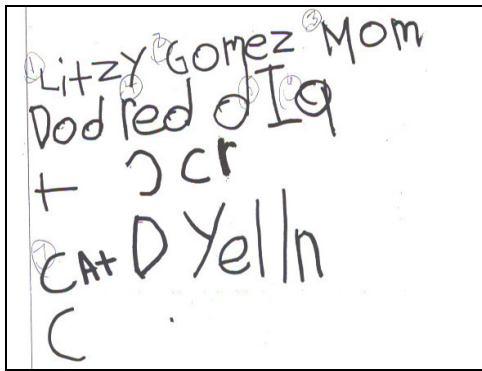 ① Litzy ② Gomez ③ Mom
Dod ④ red d I q
+ ɔ cr
⑦ CAt D Yelln
C